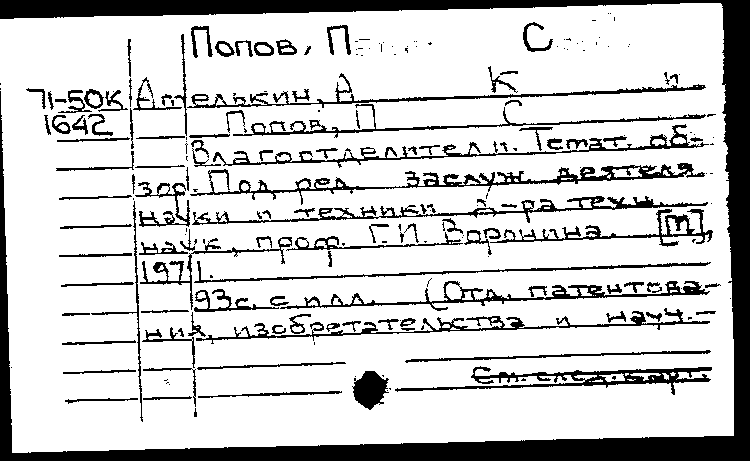 Попов, П С
71-50К Ателькин, А К и
1642 Попов, П С
Влагоотделители. Темат. об-
зор. Под ред. заслуж. деятеля
науки и техники д-ра техн.
наук, проф. Г.И. Воронина. [М],
1971.
93с. с илл. (Отд. патентова-
ния, изобретательства и науч.-
См. след. карт.